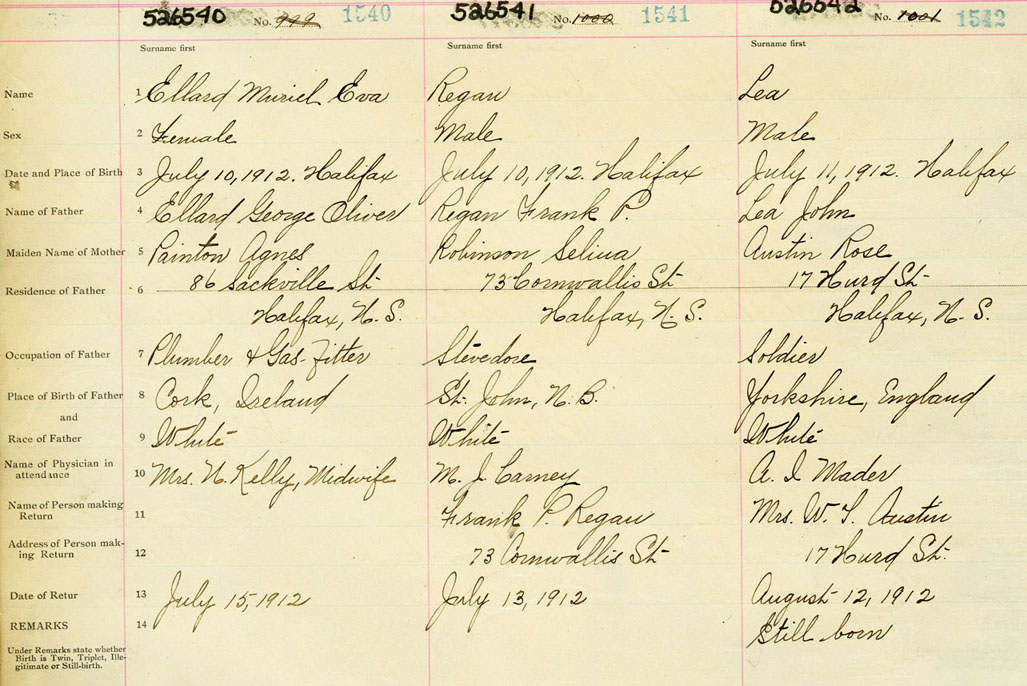 526540 No. 999 1540 526541 No. 1000 1541 526542 No. 1001 1542
Surname first Surname first Surname first
Name 1 Ellard Muriel Eva Regan Lea
Sex 2 Female Male Male
Date and Place of Birth 3 July 10, 1912. Halifax July 10, 1912. Halifax July 11, 1912. Halifax
Name of Father 4 Ellard George Oliver Regan Frank P. Lea John
Maiden Name of Mother 5 Painton Agnes Robinson Selina Austin Rose
Residence of Father 6 86 Sackville St. 73 Cornwallis St. 17 Hurd St.
Halifax, N. S. Halifax, N. S. Halifax, N. S.
Occupation of Father 7 Plumber & Gas-Fitter Stevedore Soldier
Place of Birth of Father 8 Cork, Ireland St. John, N. B. Yorkshire, England
and
Race of Father 9 White White White
Name of Physician in
attendance 10 Mrs. N. Kelly, Midwife M. J. Carney A. I Mader
Name of Person making
Return 11 Frank P. Regan Mrs. W. Austin
Address of Person mak-
ing Return 12 73 Cornwallis St. 17 Hurd St.
Date of Retur 13 July 15, 1912 July 13, 1912 August 12, 1912
REMARKS 14 Still born
Under Remarks state whether
Birth is Twin, Triplet, Ille-
gitimate or Still-birth.